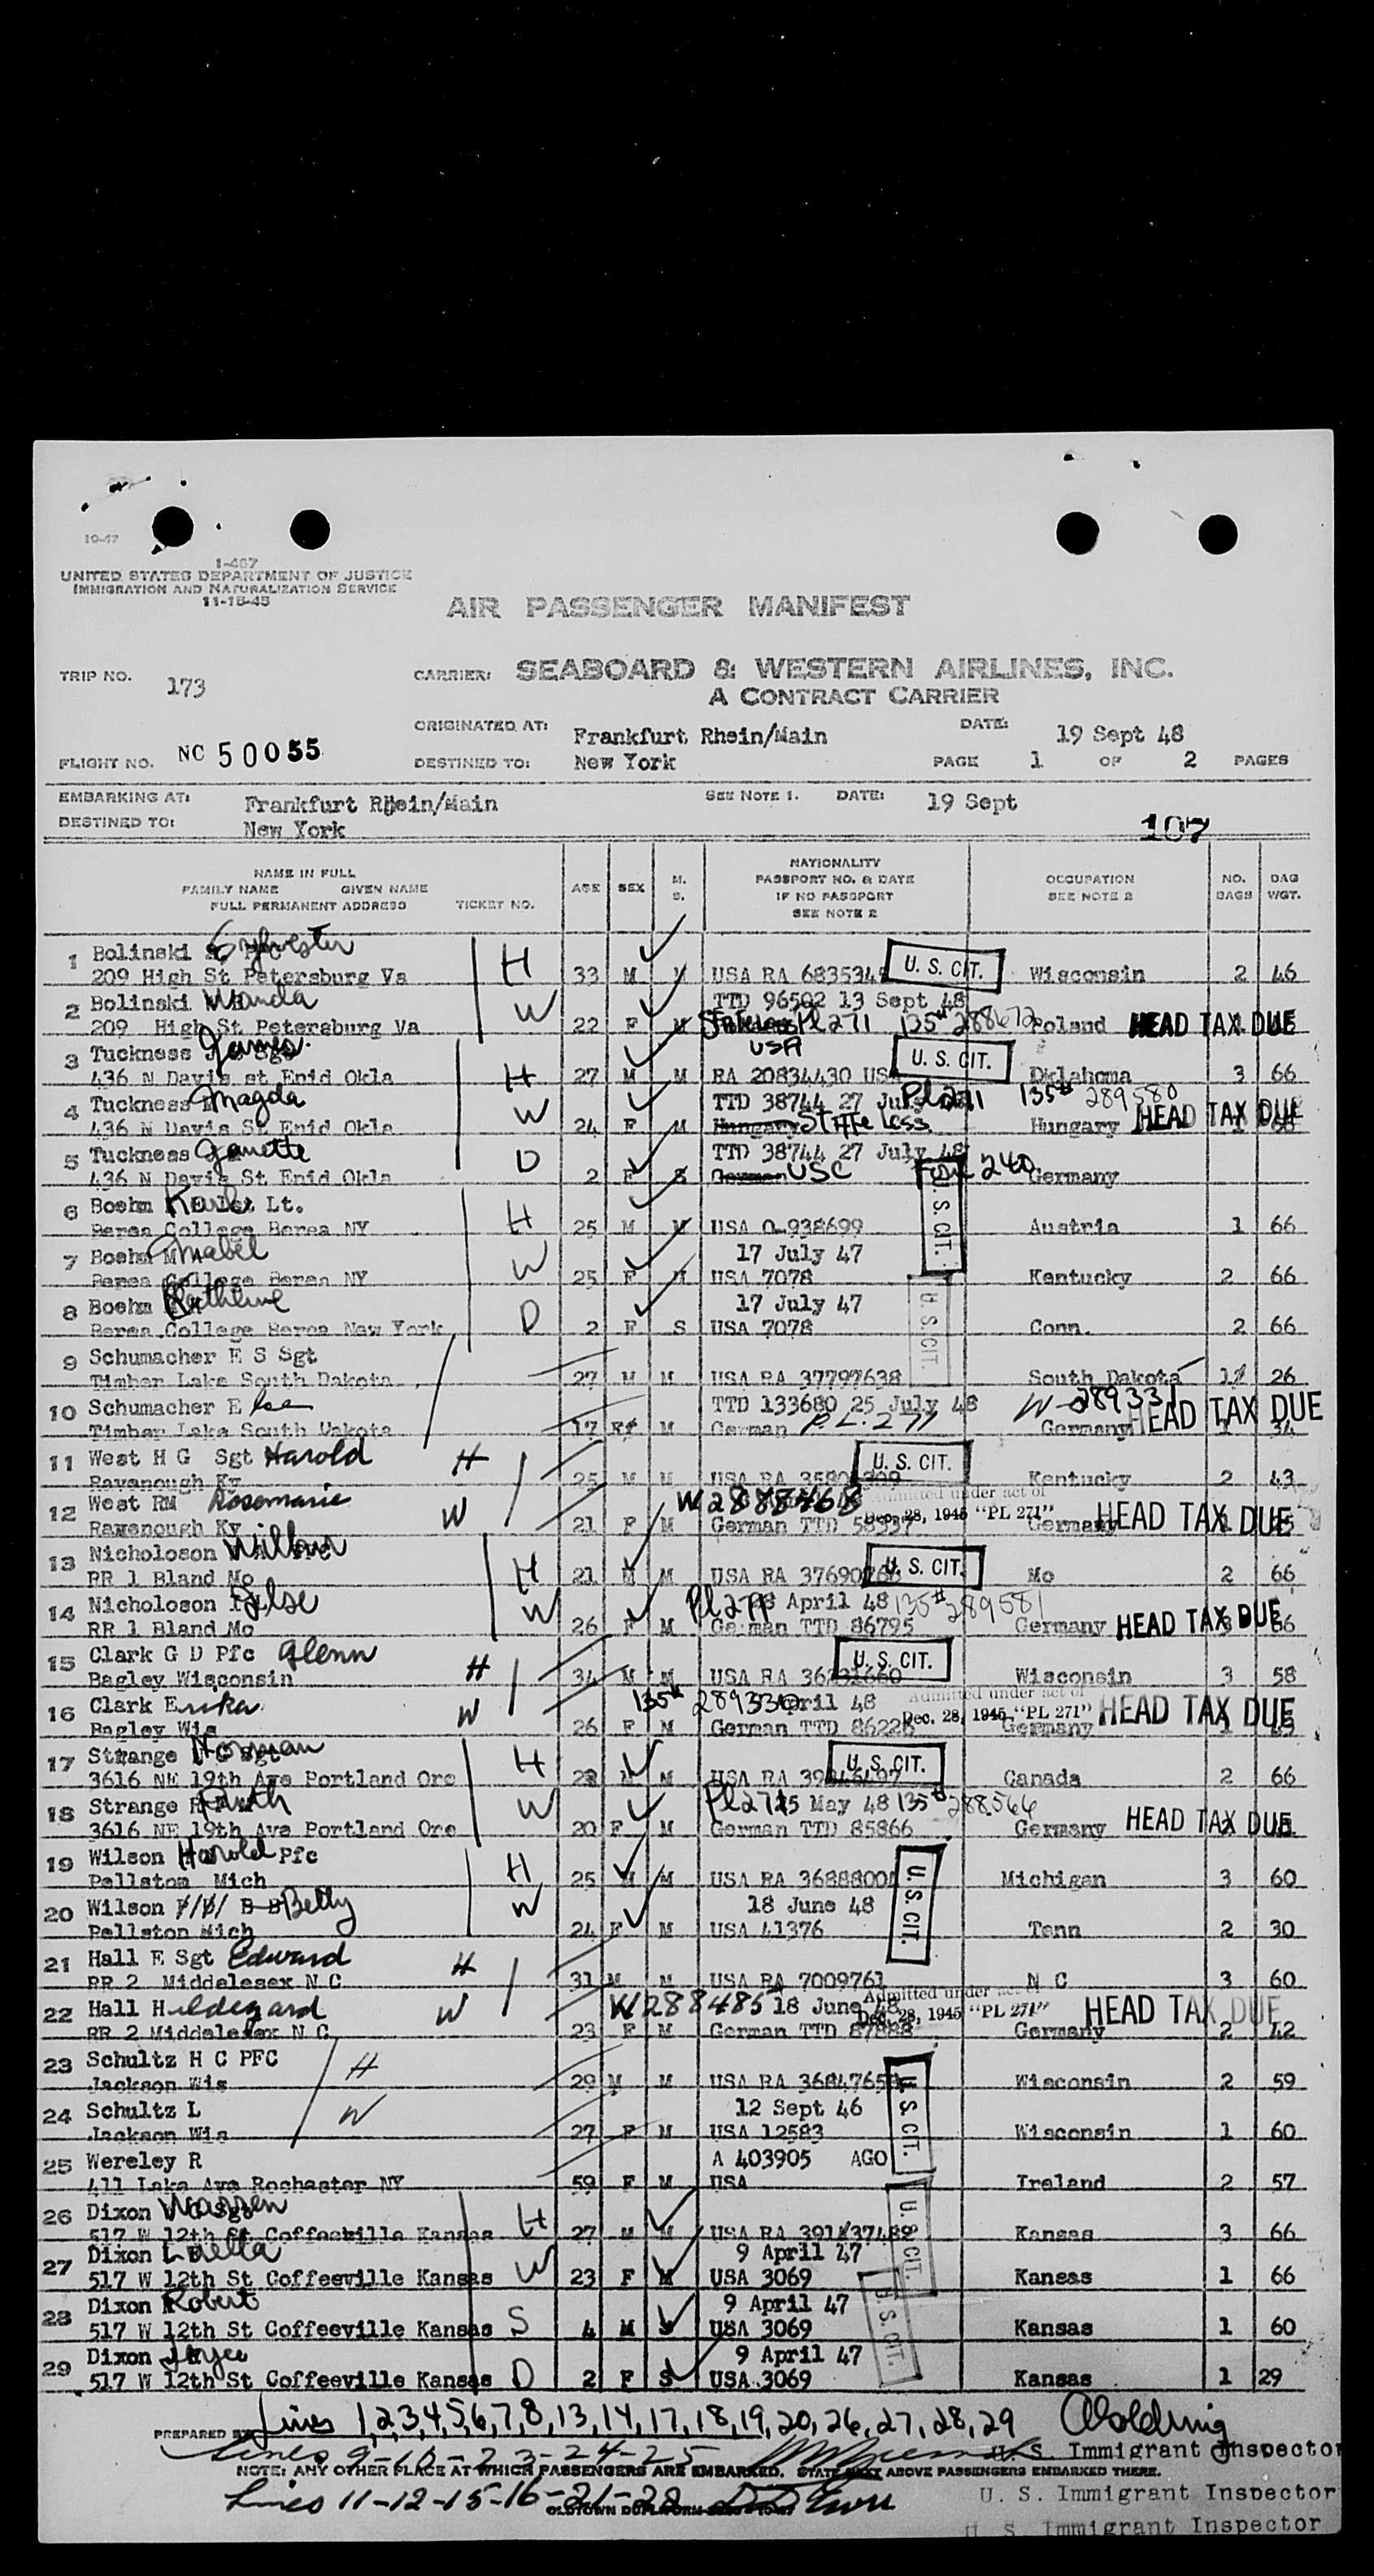 10-47
1-467
UNITED STATES DEPARTMENT OF JUSTICE
IMMIGRATION AND NATURALIZATION SERVICE
11-15-45
AIR PASSENGER MANIFEST
TRIP NO. 173 CARRIER: SEABOARD & WESTERN AIRLINES, INC.
A CONTRACT CARRIER
ORIGINATED AT: Frankfurt Rhein/Main DATE: 19 Sept 48
FLIGHT NO. NC 50055 DESTINED TO: New York PAGE 1 OF 2 PAGES
EMBARKING AT: Frankfurt Rhein/Main SEE NOTE 1. DATE: 19 Sept
DESTINED TO: New York
107
NAME IN FULL
FAMILY NAME GIVEN NAME
FULL PERMANENT ADDRESS TICKET NO. AGE SEX M. S. NATIONALITY PASSPORT NO. & DATE IF NO PASSPORT SEE NOTE 2 OCCUPATION SEE NOTE 2 NO. BAGS BAG WGT.
1 Bolinski Sylvester
209 High St Petersburg Va H 33 M M USA RA U. S. CIT. Wisconsin 2 46
2 Bolinski Wanda TTD 96502 13 Sept 48
209 High St Petersburg Va W 22 F M Stateless Pl 271 135# 288672 Poland HEAD TAX DUE
3 Tuckness James Sgt USA U. S. CIT.
436 N Davis st Enid Okla H 27 M M RA 20834430 USA Oklahoma 3 66
4 Tuckness Magda TTD 38744 27 July Pl 271 135# 289580
436 N Davis St Enid Okla W 24 F M Hungary Stateless Hungary HEAD TAX DUE
5 Tuckness Janette TTD 38744 27 July 48
436 N Davis St Enid Okla D 2 F S German USC 240 Germany
6 Boehm Karl Lt. U. S. CIT.
Berea College Berea NY H 25 M M USA O-938699 Austria 1 66
7 Boehm Mabel 17 July 47
Berea College Berea NY W 25 F M USA 7078 Kentucky 2 66
8 Boehm Katherine 17 July 47 U. S. CIT.
Berea College Berea New York D 2 F S USA 7078 Conn. 2 66
9 Schumacher E S Sgt
Timber Lake South Dakota 27 M M USA RA 37797638 South Dakota 26
10 Schumacher Else TTD 133680 25 July 48 W-289331
Timber Lake South Dakota 17 F M German P.L. 271 Germany HEAD TAX DUE 34
11 West H G Sgt Harold H U. S. CIT.
Ravanough Ky 25 M M USA RA Kentucky 2 43
12 West RM Rosemarie W W288846 Admitted under act of Dec. 28, 1945 "PL 271"
Ravenough Ky 21 F M German TTD Germany HEAD TAX DUE
13 Nicholoson Wilbur U. S. CIT.
RR 1 Bland Mo H 21 M M USA RA Mo 2 66
14 Nicholoson Ilse Pl 271 April 48 135# 289581
RR 1 Bland Mo W 26 F M German TTD 86795 Germany HEAD TAX DUE 66
15 Clark G D Pfc Glenn U. S. CIT.
Bagley Wisconsin H 34 M M USA RA Wisconsin 3 58
16 Clark Erika 135# 289330 April 48 Admitted under act of Dec. 28, 1945 "PL 271"
Bagley Wis W 26 F M German TTD Germany HEAD TAX DUE
17 Strange Norman U. S. CIT.
3616 NE 19th Ave Portland Ore H M M USA RA Canada 2 66
18 Strange Ruth Pl 271 May 48 135# 288566
3616 NE 19th Ave Portland Ore W 20 F M German TTD 85866 Germany HEAD TAX DUE
19 Wilson Harold Pfc U. S. CIT.
Pellston Mich H 25 M M USA RA Michigan 3 60
20 Wilson B Betty 18 June 48
Pellston Mich W 24 F M USA 41376 Tenn 2 30
21 Hall E Sgt Edward H
RR 2 Middelesex N C 31 M M USA RA 7009761 N C 3 60
22 Hall Hildegard W W288485 18 June 48 Admitted under act of Dec. 28, 1945 "PL 271"
RR 2 Middelesex N C 23 F M German TTD Germany HEAD TAX DUE 2 42
23 Schultz H C PFC H U. S. CIT.
Jackson Wis 29 M M USA RA Wisconsin 2 59
24 Schultz L W 12 Sept 46
Jackson Wis 27 F M USA 12583 Wisconsin 1 60
25 Wereley R A 403905 AGO
411 Lake Ave Rochester NY 59 F M USA Ireland 2 57
26 Dixon Warren U. S. CIT.
517 W 12th St. Coffeeville Kansas H 27 M M USA RA Kansas 3 66
27 Dixon Luella 9 April 47
517 W 12th St Coffeeville Kansas W 23 F M USA 3069 Kansas 1 66
28 Dixon Robert 9 April 47 U. S. CIT.
517 W 12th St Coffeeville Kansas S 4 M S USA 3069 Kansas 1 60
29 Dixon Joyce 9 April 47
517 W 12th St Coffeeville Kansas D 2 F S USA 3069 Kansas 1 29
PREPARED BY Lines 1,2,3,4,5,6,7,8,13,14,17,18,19,20,26,27,28,29
Lines 9-10-23-24-25 U. S. Immigrant Inspector
NOTE: ANY OTHER PLACE AT WHICH PASSENGERS ARE EMBARKED. STATE NEXT ABOVE PASSENGERS EMBARKED THERE.
Lines 11-12-15-16-21-22 U. S. Immigrant Inspector
U. S. Immigrant Inspector